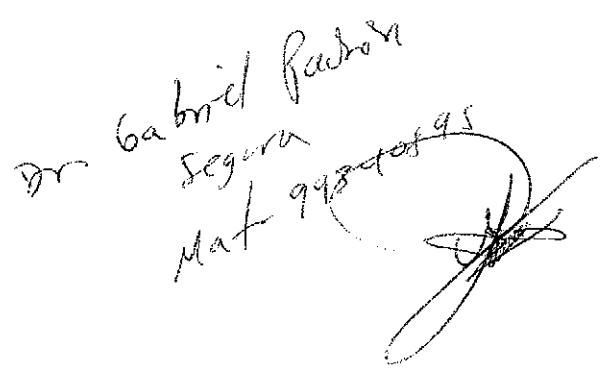 Dr Gabriel Padrón
Segura
Mat 99840895